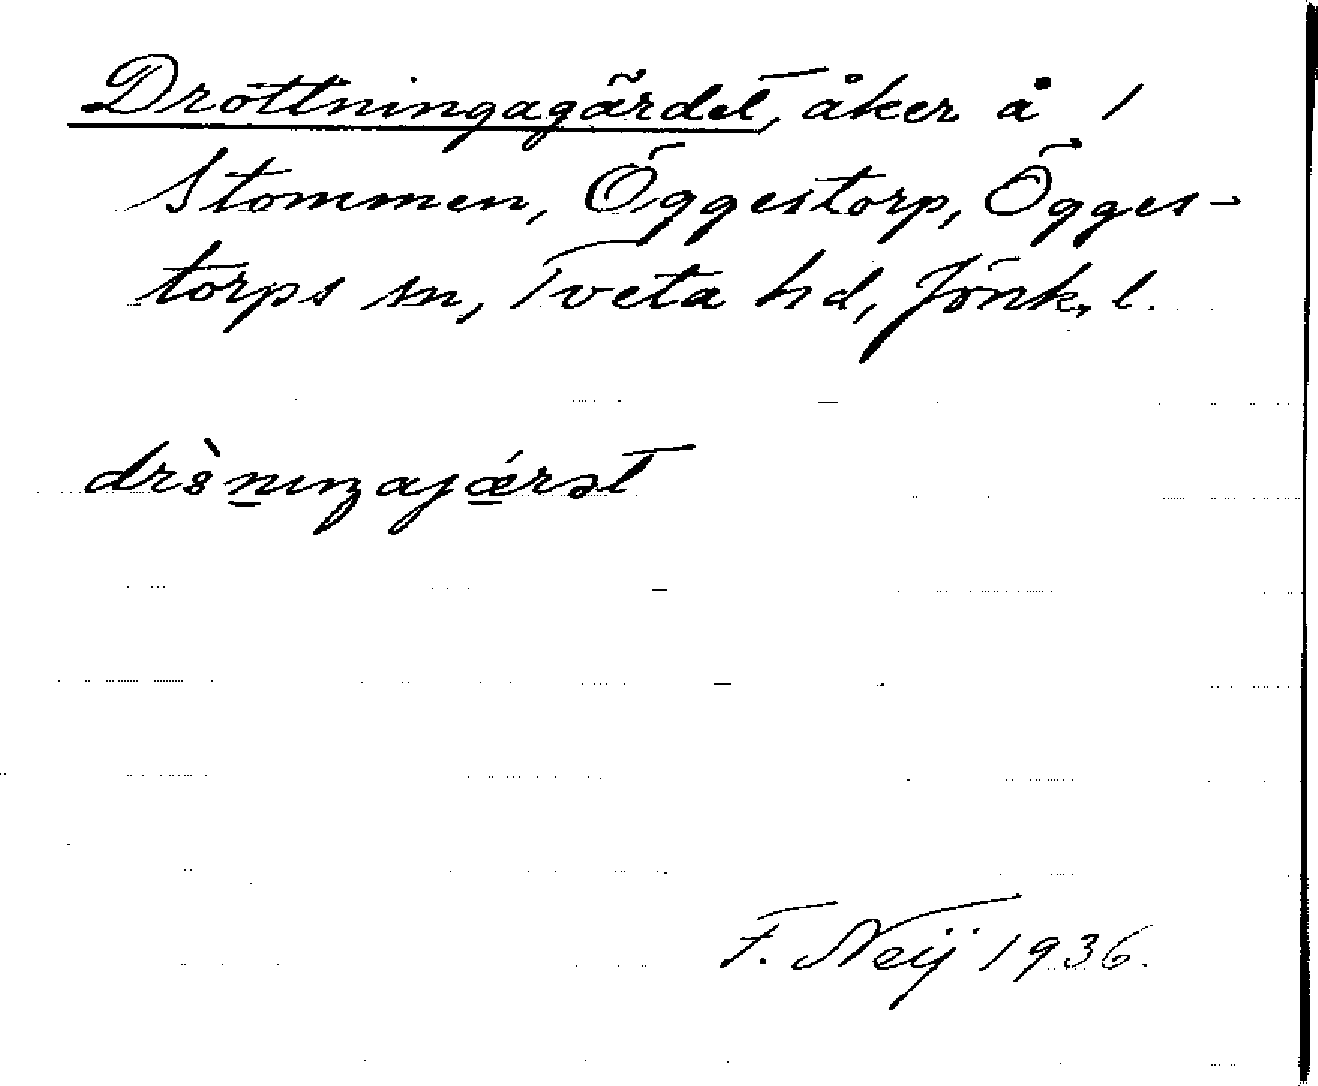 Drottningagärdet, åker å 1
Stommen, Öggestorp, Ögges-
torps sn, Tveta hd, Jönk. l.
F. Neij 1936.